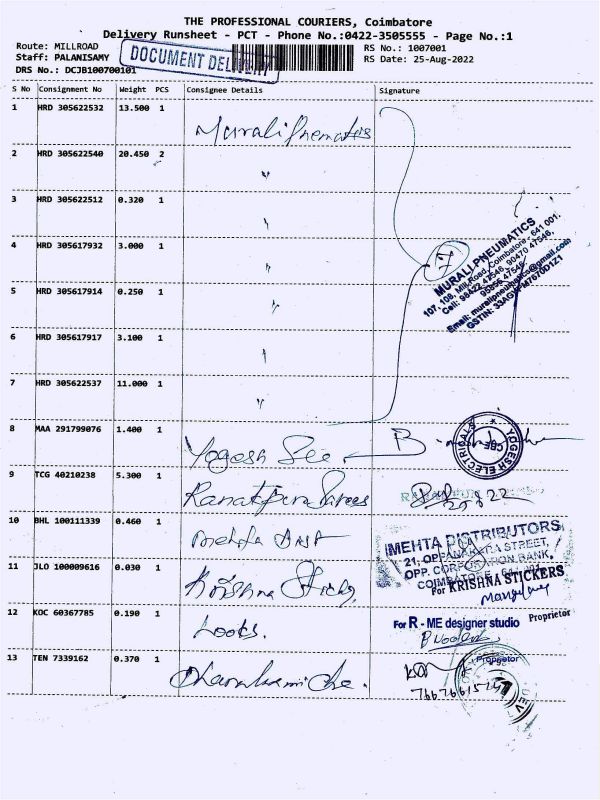 THE PROFESSIONAL COURIERS, Coimbatore
Delivery Runsheet - PCT - Phone No.:0422-3505555 - Page No.:1
Route: MILLROAD
RS No.: 1007001
Staff: PALANISAMY
RS Date: 25-Aug-2022
DRS No.: DCJB100700101
DOCUMENT DELIVERY
S No Consignment No Weight PCS Consignee Details Signature
1 HRD 305622532 13.500 1
2 HRD 305622540 20.450 2 "
3 HRD 305622512 0.320 1 "
4 HRD 305617932 3.000 1 "
5 HRD 305617914 0.250 1 "
6 HRD 305617917 3.100 1 "
7 HRD 305622537 11.000 1 "
7
MURALI PNEUMATICS
107, 108, Mill Road, Coimbatore - 641 001.
Cell: 98422 47546, 90470 47546,
Email: muralipneumatics@gmail.com
8 MAA 291799076 1.400 1 Yogesh Ele
YOGESH ELECTRICALS CBE-1
9 TCG 40210238 5.300 1
10 BHL 100111339 0.460 1 Mehta Dist
MEHTA DISTRIBUTORS
21, OPPANAKARA STREET,
OPP. CORPORATION BANK,
COIMBATORE
11 JLO 100009616 0.030 1 Krishna Sticky
For KRISHNA STICKERS
12 KOC 60367785 0.190 1 Looks.
Proprietor
For R - ME designer studio
13 TEN 7339162 0.370 1
Proprietor